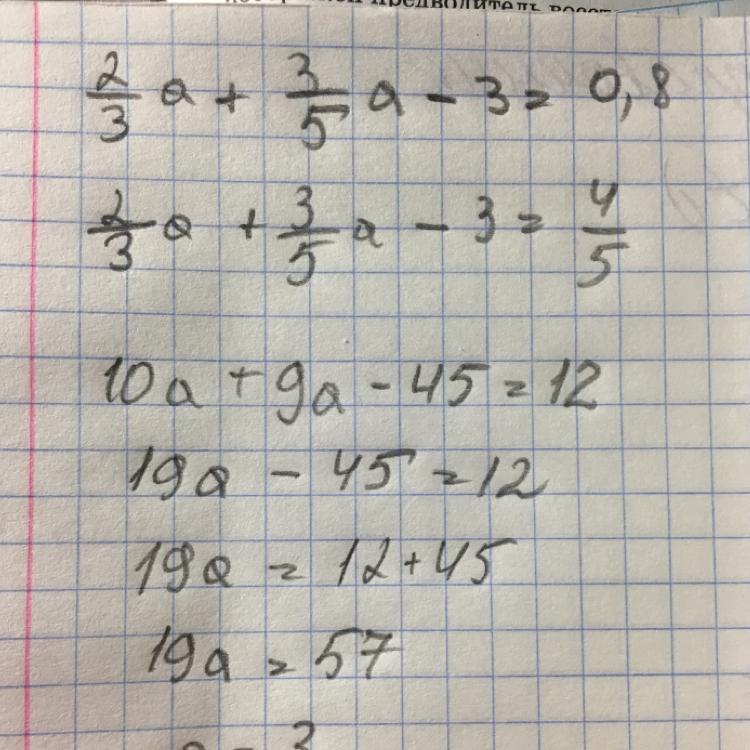 предводитель
2/3 a + 3/5 a - 3 = 0,8
2/3 a + 3/5 a - 3 = 4/5
10a + 9a - 45 = 12
19a - 45 = 12
19a = 12 + 45
19a = 57
a = 3